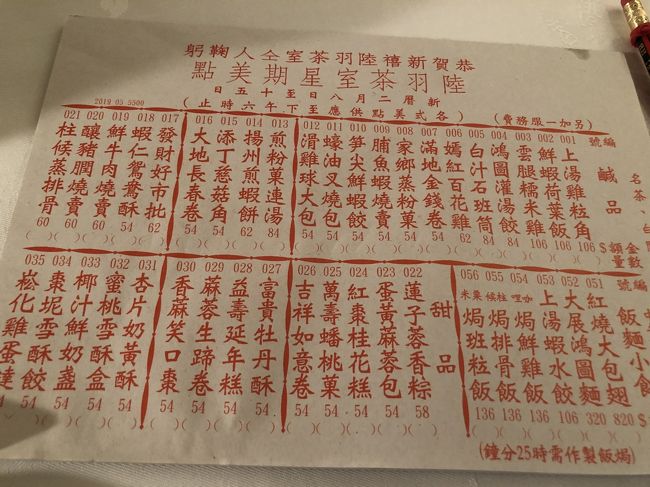 恭賀新禧陸羽茶室仝人鞠躬
陸羽茶室星期美點
新曆二月八日至十五日
(各式美點供應至下午六時止)
(另加一服務費)
2019 05 5500
編號
鹹品
金額
數量
001 上湯雞粒角 $106
002 鮮蝦荷葉飯 106
003 雲腿糯米雞 106
004 鴻圖灌湯餃 84
005 白汁石班筒 84
006 嫣紅百花雞 62
007 滿地金錢卷 54
008 家鄉蒸粉菓 54
009 脯魚蝦燒賣 54
010 笋尖鮮蝦餃 54
011 蠔油叉燒包 54
012 滑雞球大包 54
013 煎粉菓連湯 84
014 揚州煎蝦餅 62
015 添丁慈菇角 54
016 大地長春卷 54
017 發財好市批 62
018 蝦仁鴛鴦酥 62
019 鮮牛肉燒賣 60
020 釀豬膶燒賣 60
021 柱候蒸排骨 60
編號
飯麵小食
051 紅燒大包翅 $820
052 大展鴻圖麵 320
053 上湯蝦水餃 106
054 咖喱焗鮮雞飯 136
055 柱候焗排骨飯 136
056 粟米焗班粒飯 136
(焗飯製作需時25分鐘)
甜品
022 蓮子蓉香粽 58
023 蛋黃蔴蓉包 54
024 紅棗桂花糕 54
025 萬壽蟠桃菓 54
026 吉祥如意卷 54
027 富貴牡丹酥 54
028 益壽延年糕 54
029 蔴蓉生蹄卷 54
030 香蔴笑口棗 54
031 杏片奶黃酥 54
032 蜜桃雪酥盒 54
033 椰汁鮮奶盞 54
034 棗坭雪酥餃 54
035 崧化雞蛋撻 54